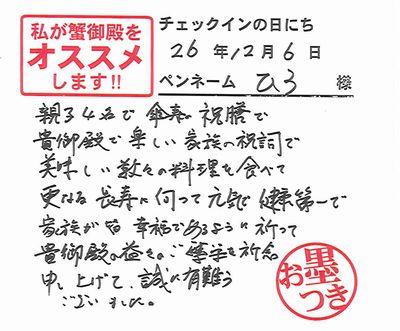 私が蟹御殿を
オススメ
します!!
チェックインの日にち
26年12月6日
ペンネーム ひろ 様
親子4名で 傘寿の祝膳で
貴御殿で楽しい家族の祝詞で
美味しい数々の料理を食べて
更なる長寿に向って元気で健康第一で
家族が皆幸福であるように祈って
貴御殿の益々のご繁栄を祈念
申し上げて、誠に有難う
ございました。
お墨つき